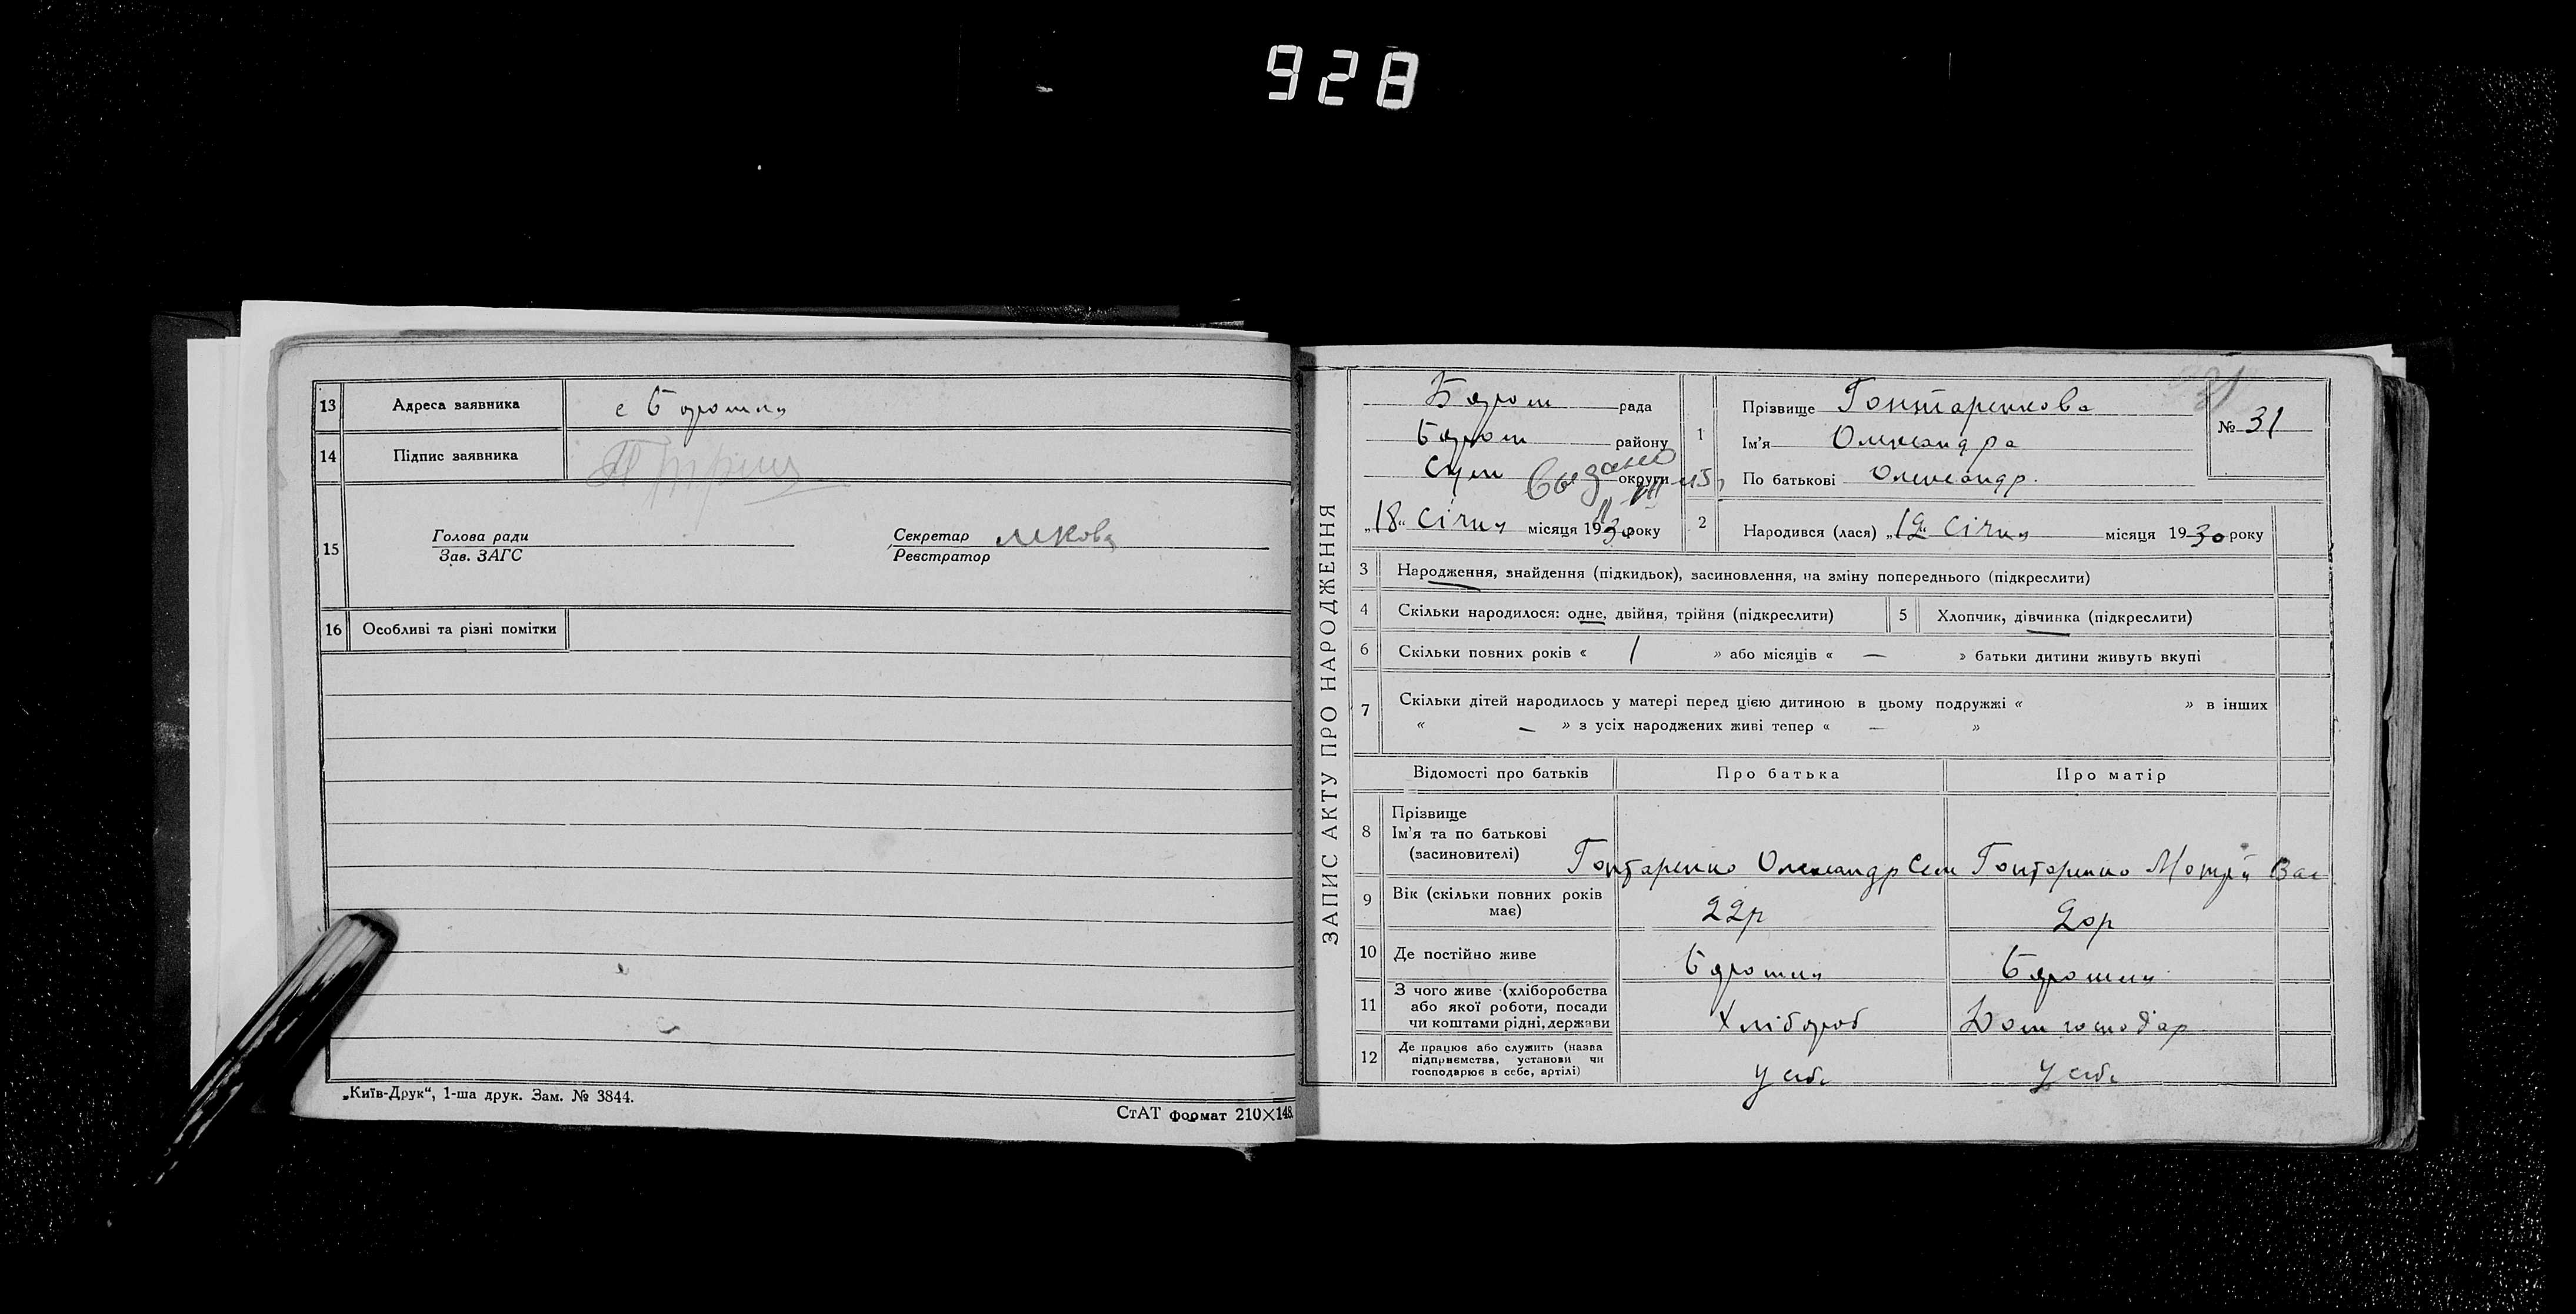 928
13 Адреса заявника с Боромля
14 Підпис заявника
15 Голова ради
Зав. ЗАГС
Секретар
Реєстратор
16 Особливі та різні помітки
„Київ-Друк“, 1-ша друк. Зам. № 3844.
СтАТ формат 210×148.
ЗАПИС АКТУ ПРО НАРОДЖЕННЯ
Бором рада
Бором району
Сум округи
Выдано
„18“ Січня місяця 1930 року
1 Прізвище Гонтаренкова
Ім'я Олександра
По батькові Олександр.
№ 31
2 Народився (лася) „12“ Січня місяця 1930 року
3 Народження, знайдення (підкидьок), засиновлення, на зміну попереднього (підкреслити)
4 Скільки народилося: одне, двійня, трійня (підкреслити)
5 Хлопчик, дівчинка (підкреслити)
6 Скільки повних років « 1 » або місяців « — » батьки дитини живуть вкупі
7 Скільки дітей народилось у матері перед цією дитиною в цьому подружжі « » в інших
« — » з усіх народжених живі тепер « — »
Відомості про батьків Про батька Про матір
8 Прізвище
Ім'я та по батькові
(засиновителі)
Гонтаренко Олександр Сем Гонтаренко Мотря Вас
9 Вік (скільки повних років
має)
22р 20р
10 Де постійно живе Боромля Боромля
11 З чого живе (хліборобства
або якої роботи, посади
чи коштами рідні, держави
Хлібороб Дом господар
12 Де працює або служить (назва
підприємства, установи чи
господарює в себе, артілі)
У себе У себе